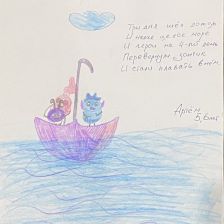 Три дня шёл дождь
И налил целое море
И герои на 4-ый день
Перевернули зонтик
И стали плавать в нём.
Артём
5,6 лет